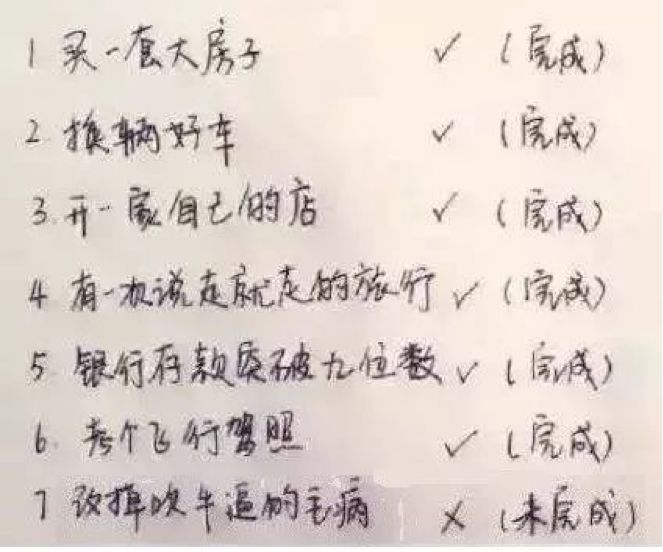 1 买一套大房子 ✓ (完成)
2. 换辆好车 ✓ (完成)
3. 开一家自己的店 ✓ (完成)
4 有一次说走就走的旅行 ✓ (完成)
5 银行存款突破九位数 ✓ (完成)
6. 考个飞行驾照 ✓ (完成)
7 改掉吹牛逼的毛病 ✗ (未完成)